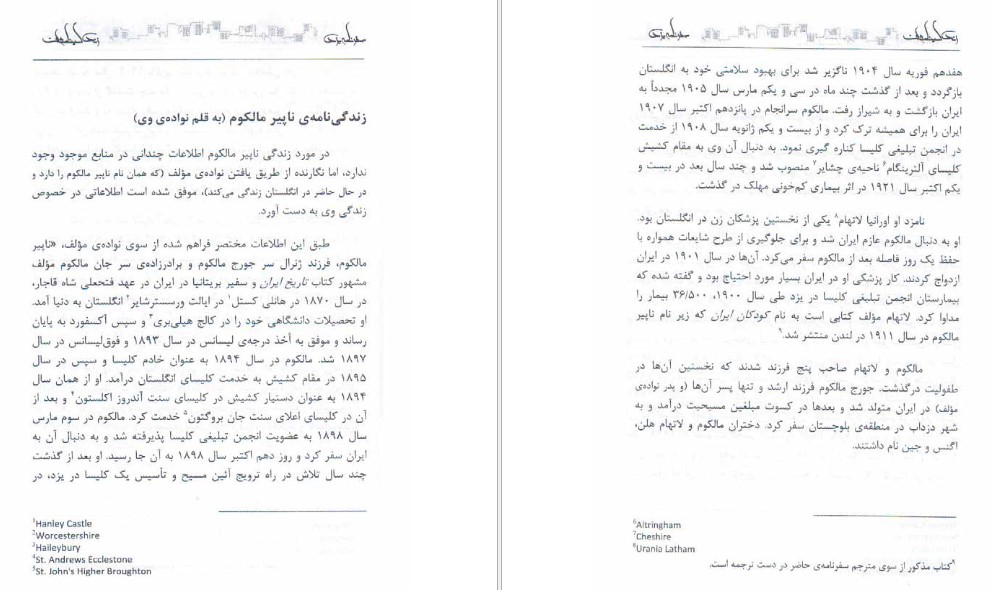 زندگی‌نامه‌ی ناپیر مالکوم (به قلم نواده‌ی وی)
در مورد زندگی ناپیر مالکوم اطلاعات چندانی در منابع موجود وجود
ندارد، اما نگارنده از طریق یافتن نواده‌ی مؤلف (که همان نام ناپیر مالکوم را دارد و
در حال حاضر در انگلستان زندگی می‌کند)، موفق شده است اطلاعاتی در خصوص
زندگی وی به دست آورد.
طبق این اطلاعات مختصر فراهم شده از سوی نواده‌ی مؤلف، «ناپیر
مالکوم، فرزند ژنرال سر جورج مالکوم و برادرزاده‌ی سر جان مالکوم مؤلف
مشهور کتاب تاریخ ایران و سفیر بریتانیا در ایران در عهد فتحعلی شاه قاجار،
در سال ۱۸۷۰ در هانلی کستل¹ در ایالت ورسسترشایر² انگلستان به دنیا آمد.
او تحصیلات دانشگاهی خود را در کالج هیلی‌بری³ و سپس آکسفورد به پایان
رساند و موفق به أخذ درجه‌ی لیسانس در سال ۱۸۹۳ و فوق‌لیسانس در سال
۱۸۹۷ شد. مالکوم در سال ۱۸۹۴ به عنوان خادم کلیسا و سپس در سال
۱۸۹۵ در مقام کشیش به خدمت کلیسای انگلستان درآمد. او از همان سال
۱۸۹۴ به عنوان دستیار کشیش در کلیسای سنت آندروز اکلستون⁴ و بعد از
آن در کلیسای اعلای سنت جان بروگتون⁵ خدمت کرد. مالکوم در سوم مارس
سال ۱۸۹۸ به عضویت انجمن تبلیغی کلیسا پذیرفته شد و به دنبال آن به
ایران سفر کرد و روز دهم اکتبر سال ۱۸۹۸ به آن جا رسید. او بعد از گذشت
چند سال تلاش در راه ترویج آئین مسیح و تأسیس یک کلیسا در یزد، در
¹Hanley Castle
²Worcestershire
³Haileybury
⁴St. Andrews Ecclestone
⁵St. John's Higher Broughton
هفدهم فوریه سال ۱۹۰۴ ناگزیر شد برای بهبود سلامتی خود به انگلستان
بازگردد و بعد از گذشت چند ماه در سی و یکم مارس سال ۱۹۰۵ مجدداً به
ایران بازگشت و به شیراز رفت. مالکوم سرانجام در پانزدهم اکتبر سال ۱۹۰۷
ایران را برای همیشه ترک کرد و از بیست و یکم ژانویه سال ۱۹۰۸ از خدمت
در انجمن تبلیغی کلیسا کناره گیری نمود. به دنبال آن وی به مقام کشیش
کلیسای آلترینگام⁶ ناحیه‌ی چشایر⁷ منصوب شد و چند سال بعد در بیست و
یکم اکتبر سال ۱۹۲۱ در اثر بیماری کم‌خونی مهلک در گذشت.
نامزد او اورانیا لاتهام⁸ یکی از نخستین پزشکان زن در انگلستان بود.
او به دنبال مالکوم عازم ایران شد و برای جلوگیری از طرح شایعات همواره با
حفظ یک روز فاصله بعد از مالکوم سفر می‌کرد. آن‌ها در سال ۱۹۰۱ در ایران
ازدواج کردند. کار پزشکی او در ایران بسیار مورد احتیاج بود و گفته شده که
بیمارستان انجمن تبلیغی کلیسا در یزد طی سال ۱۹۰۰، ۳۶/۵۰۰ بیمار را
مداوا کرد. لاتهام مؤلف کتابی است به نام کودکان ایران که زیر نام ناپیر
مالکوم در سال ۱۹۱۱ در لندن منتشر شد.⁹
مالکوم و لاتهام صاحب پنج فرزند شدند که نخستین آن‌ها در
طفولیت درگذشت. جورج مالکوم فرزند ارشد و تنها پسر آن‌ها (و پدر نواده‌ی
مؤلف) در ایران متولد شد و بعدها در کسوت مبلغین مسیحیت درآمد و به
شهر دزداب در منطقه‌ی بلوچستان سفر کرد. دختران مالکوم و لاتهام هلن،
اگنس و جین نام داشتند.
⁶Altringham
⁷Cheshire
⁸Urania Latham
⁹کتاب مذکور از سوی مترجم سفرنامه‌ی حاضر در دست ترجمه است.